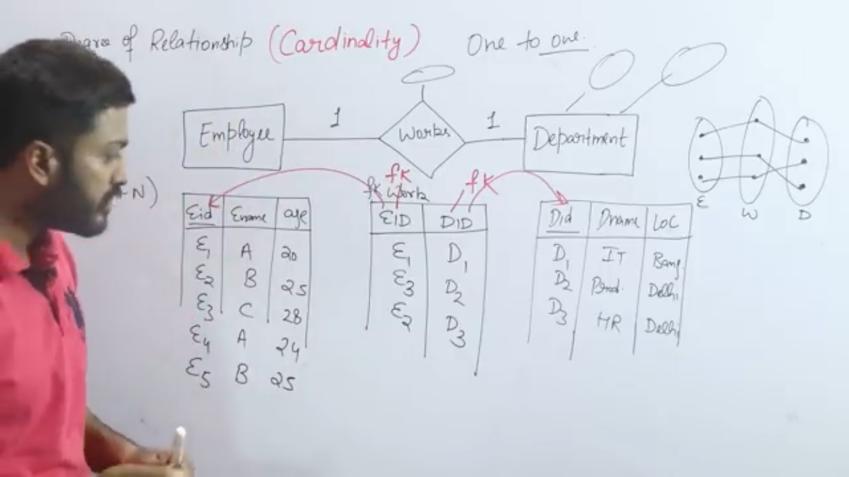 Degree of Relationship (Cardinality) One to one.
Employee 1 Works 1 Department
-N)
fk fk
fk Work
Eid Ename age
E1 A 20
E2 B 25
E3 C 28
E4 A 24
E5 B 25
EID DID
E1 D1
E3 D2
E2 D3
Did Dname LOC
D1 IT Bang
D2 Prod. Delhi
D3 HR Delhi
E W D